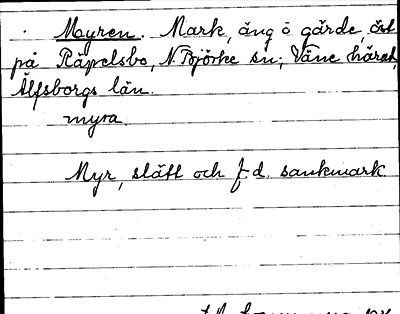 Myren. Mark, äng o gärde, öst
på Räpelsbo, N. Björke sn; Väne härad,
Älfsborgs län.
myra.
Myr, slätt och f. d. sankmark